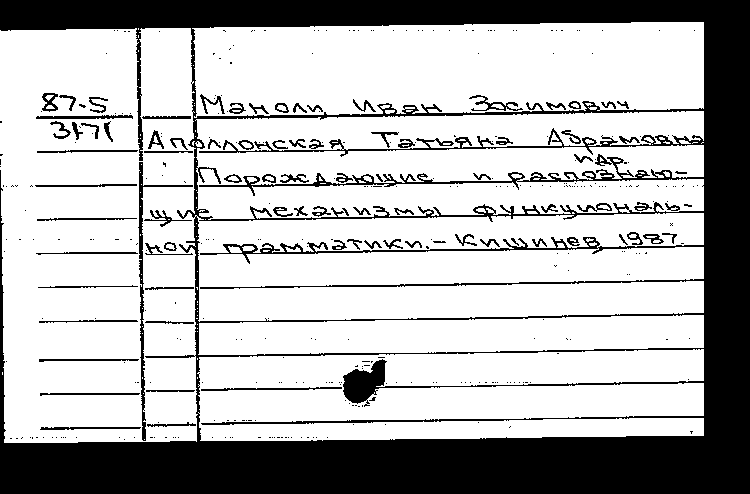 87-5
3171
Маноли, Иван Зосимович
Аполлонская, Татьяна Абрамовна
и др.
Порождающие и распознаю-
щие механизмы функциональ-
ной грамматики. - Кишинев, 1987